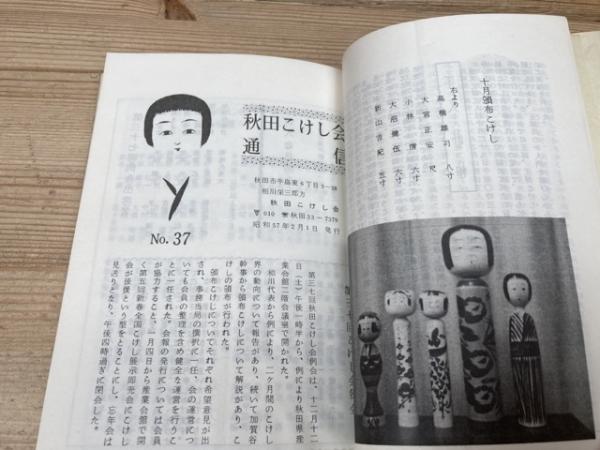 十月頒布こけし
右より
高橋雄司 八寸
大宮正安 尺
小林 清 六寸
大沼健伍 六寸
新山吉紀 五寸
秋田こけし会
通信
秋田市牛島東6丁目5-38
相川栄三郎方
秋田こけし会
〒010 ☎秋田33-7379
昭和57年2月1日 発行
No. 37
第三七回秋田こけし会例会は、十二月十二
日(土)午後一時半から、例により秋田県産
業会館二階会議室で開かれた。
相川代表から例により、二ケ月間のこけし
界の動向について報告があり、続いて加賀谷
幹事から頒布こけしについて解説があり、こ
けしの頒布が行われた。
頒布こけしについてそれぞれ希望意見が出
され、事務当局の選択に一任、会の運営につ
いても会員の整理を含め健全な運営を行うこ
とに一任された。会報の発行については会員
が協力すること、一月四日から産業会館で開
く第五回新春全国こけし展示即売会にこけし
会が後援という型をとることにし、忘年会は
見送りとなり、午後四時過ぎに閉会した。